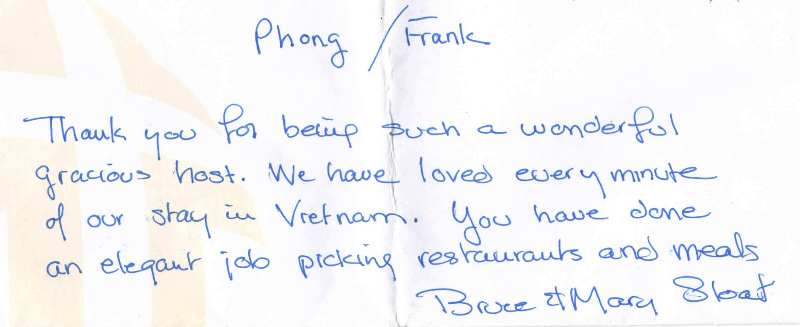 Phong / Frank
Thank you for being such a wonderful
gracious host. We have loved every minute
of our stay in Vietnam. You have done
an elegant job picking restaurants and meals
Bruce & Mary Sloat